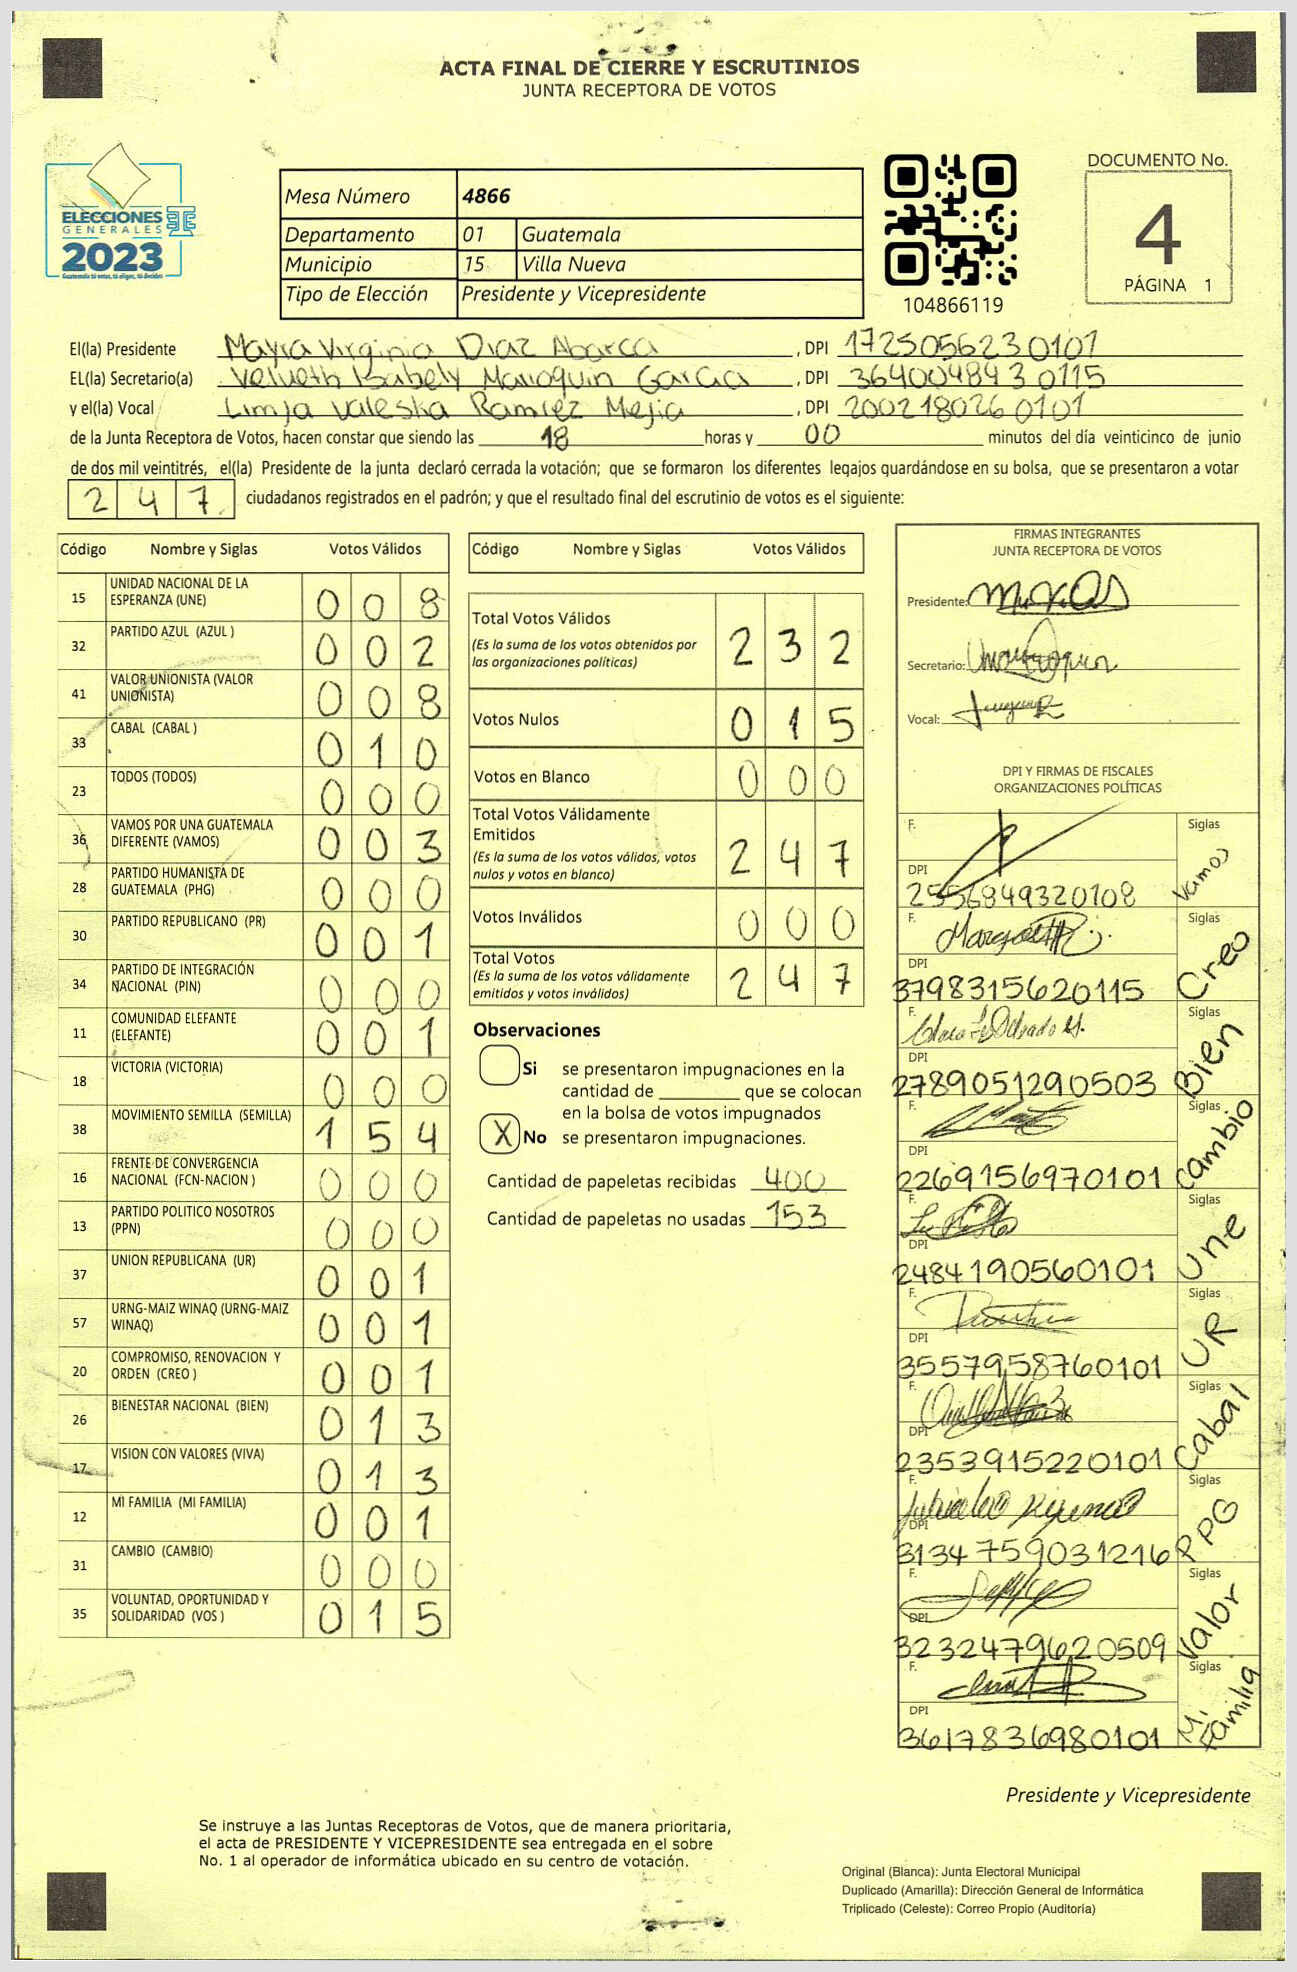 ACTA FINAL DE CIERRE Y ESCRUTINIOS
JUNTA RECEPTORA DE VOTOS
ELECCIONES
GENERALES
2023
Mesa Número 4866
Departamento 01 Guatemala
Municipio 15 Villa Nueva
Tipo de Elección Presidente y Vicepresidente
104866119
DOCUMENTO No.
4
PÁGINA 1
El(la) Presidente Mayra Virginia Diaz Abarca, DPI 1725056230101
EL(la) Secretario(a) Velveth Isabely Marroquin Garcia, DPI 3640048430115
y el(la) Vocal Valeska Ramirez Mejia, DPI 2002180260101
de la Junta Receptora de Votos, hacen constar que siendo las 18 horas y 00 minutos del día veinticinco de junio
de dos mil veintitrés, el(la) Presidente de la junta declaró cerrada la votación; que se formaron los diferentes legajos guardándose en su bolsa, que se presentaron a votar
247 ciudadanos registrados en el padrón; y que el resultado final del escrutinio de votos es el siguiente:
Código Nombre y Siglas Votos Válidos
15 UNIDAD NACIONAL DE LA ESPERANZA (UNE) 008
32 PARTIDO AZUL (AZUL ) 002
41 VALOR UNIONISTA (VALOR UNIONISTA) 008
33 CABAL (CABAL ) 010
23 TODOS (TODOS) 000
36 VAMOS POR UNA GUATEMALA DIFERENTE (VAMOS) 003
28 PARTIDO HUMANISTA DE GUATEMALA (PHG) 000
30 PARTIDO REPUBLICANO (PR) 001
34 PARTIDO DE INTEGRACIÓN NACIONAL (PIN) 000
11 COMUNIDAD ELEFANTE (ELEFANTE) 001
18 VICTORIA (VICTORIA) 000
38 MOVIMIENTO SEMILLA (SEMILLA) 154
16 FRENTE DE CONVERGENCIA NACIONAL (FCN-NACION ) 000
13 PARTIDO POLITICO NOSOTROS (PPN) 000
37 UNION REPUBLICANA (UR) 001
57 URNG-MAIZ WINAQ (URNG-MAIZ WINAQ) 001
20 COMPROMISO, RENOVACION Y ORDEN (CREO ) 001
26 BIENESTAR NACIONAL (BIEN) 013
17 VISION CON VALORES (VIVA) 013
12 MI FAMILIA (MI FAMILIA) 001
31 CAMBIO (CAMBIO) 000
35 VOLUNTAD, OPORTUNIDAD Y SOLIDARIDAD (VOS ) 015
Código Nombre y Siglas Votos Válidos
Total Votos Válidos 232
(Es la suma de los votos obtenidos por
las organizaciones políticas)
Votos Nulos 015
Votos en Blanco 000
Total Votos Válidamente
Emitidos 247
(Es la suma de los votos válidos, votos
nulos y votos en blanco)
Votos Inválidos 000
Total Votos 247
(Es la suma de los votos válidamente
emitidos y votos inválidos)
Observaciones
Si se presentaron impugnaciones en la
cantidad de ________ que se colocan
en la bolsa de votos impugnados
X No se presentaron impugnaciones.
Cantidad de papeletas recibidas 400
Cantidad de papeletas no usadas 153
FIRMAS INTEGRANTES
JUNTA RECEPTORA DE VOTOS
Presidente:
Secretario:
Vocal:
DPI Y FIRMAS DE FISCALES
ORGANIZACIONES POLÍTICAS
F. Siglas Vamos
DPI 2556849320108
F. Siglas Creo
DPI 3798315620115
F. Siglas Bien
DPI 2789051290503
F. Siglas Cambio
DPI 2269156970101
F. Siglas Une
DPI 2484190560101
F. Siglas UR
DPI 3557958760101
F. Siglas Cabal
DPI 2353915220101
F. Siglas PPG
DPI 3134759031216
F. Siglas Valor
DPI 3232479620509
F. Siglas Mi Familia
DPI 3617836980101
Presidente y Vicepresidente
Se instruye a las Juntas Receptoras de Votos, que de manera prioritaria,
el acta de PRESIDENTE Y VICEPRESIDENTE sea entregada en el sobre
No. 1 al operador de informática ubicado en su centro de votación.
Original (Blanca): Junta Electoral Municipal
Duplicado (Amarilla): Dirección General de Informática
Triplicado (Celeste): Correo Propio (Auditoría)